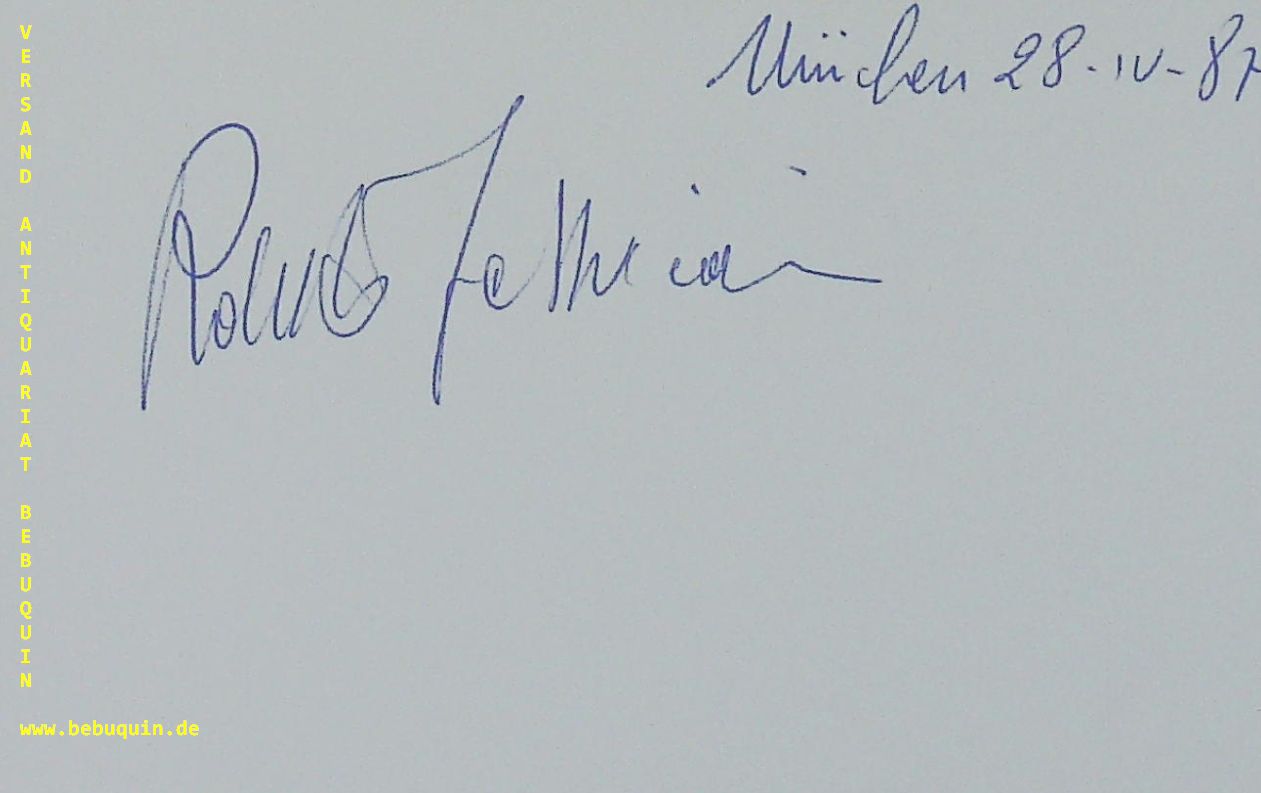 München 28-IV-87
VERSAND ANTIQUARIAT BEBUQUIN
www.bebuquin.de